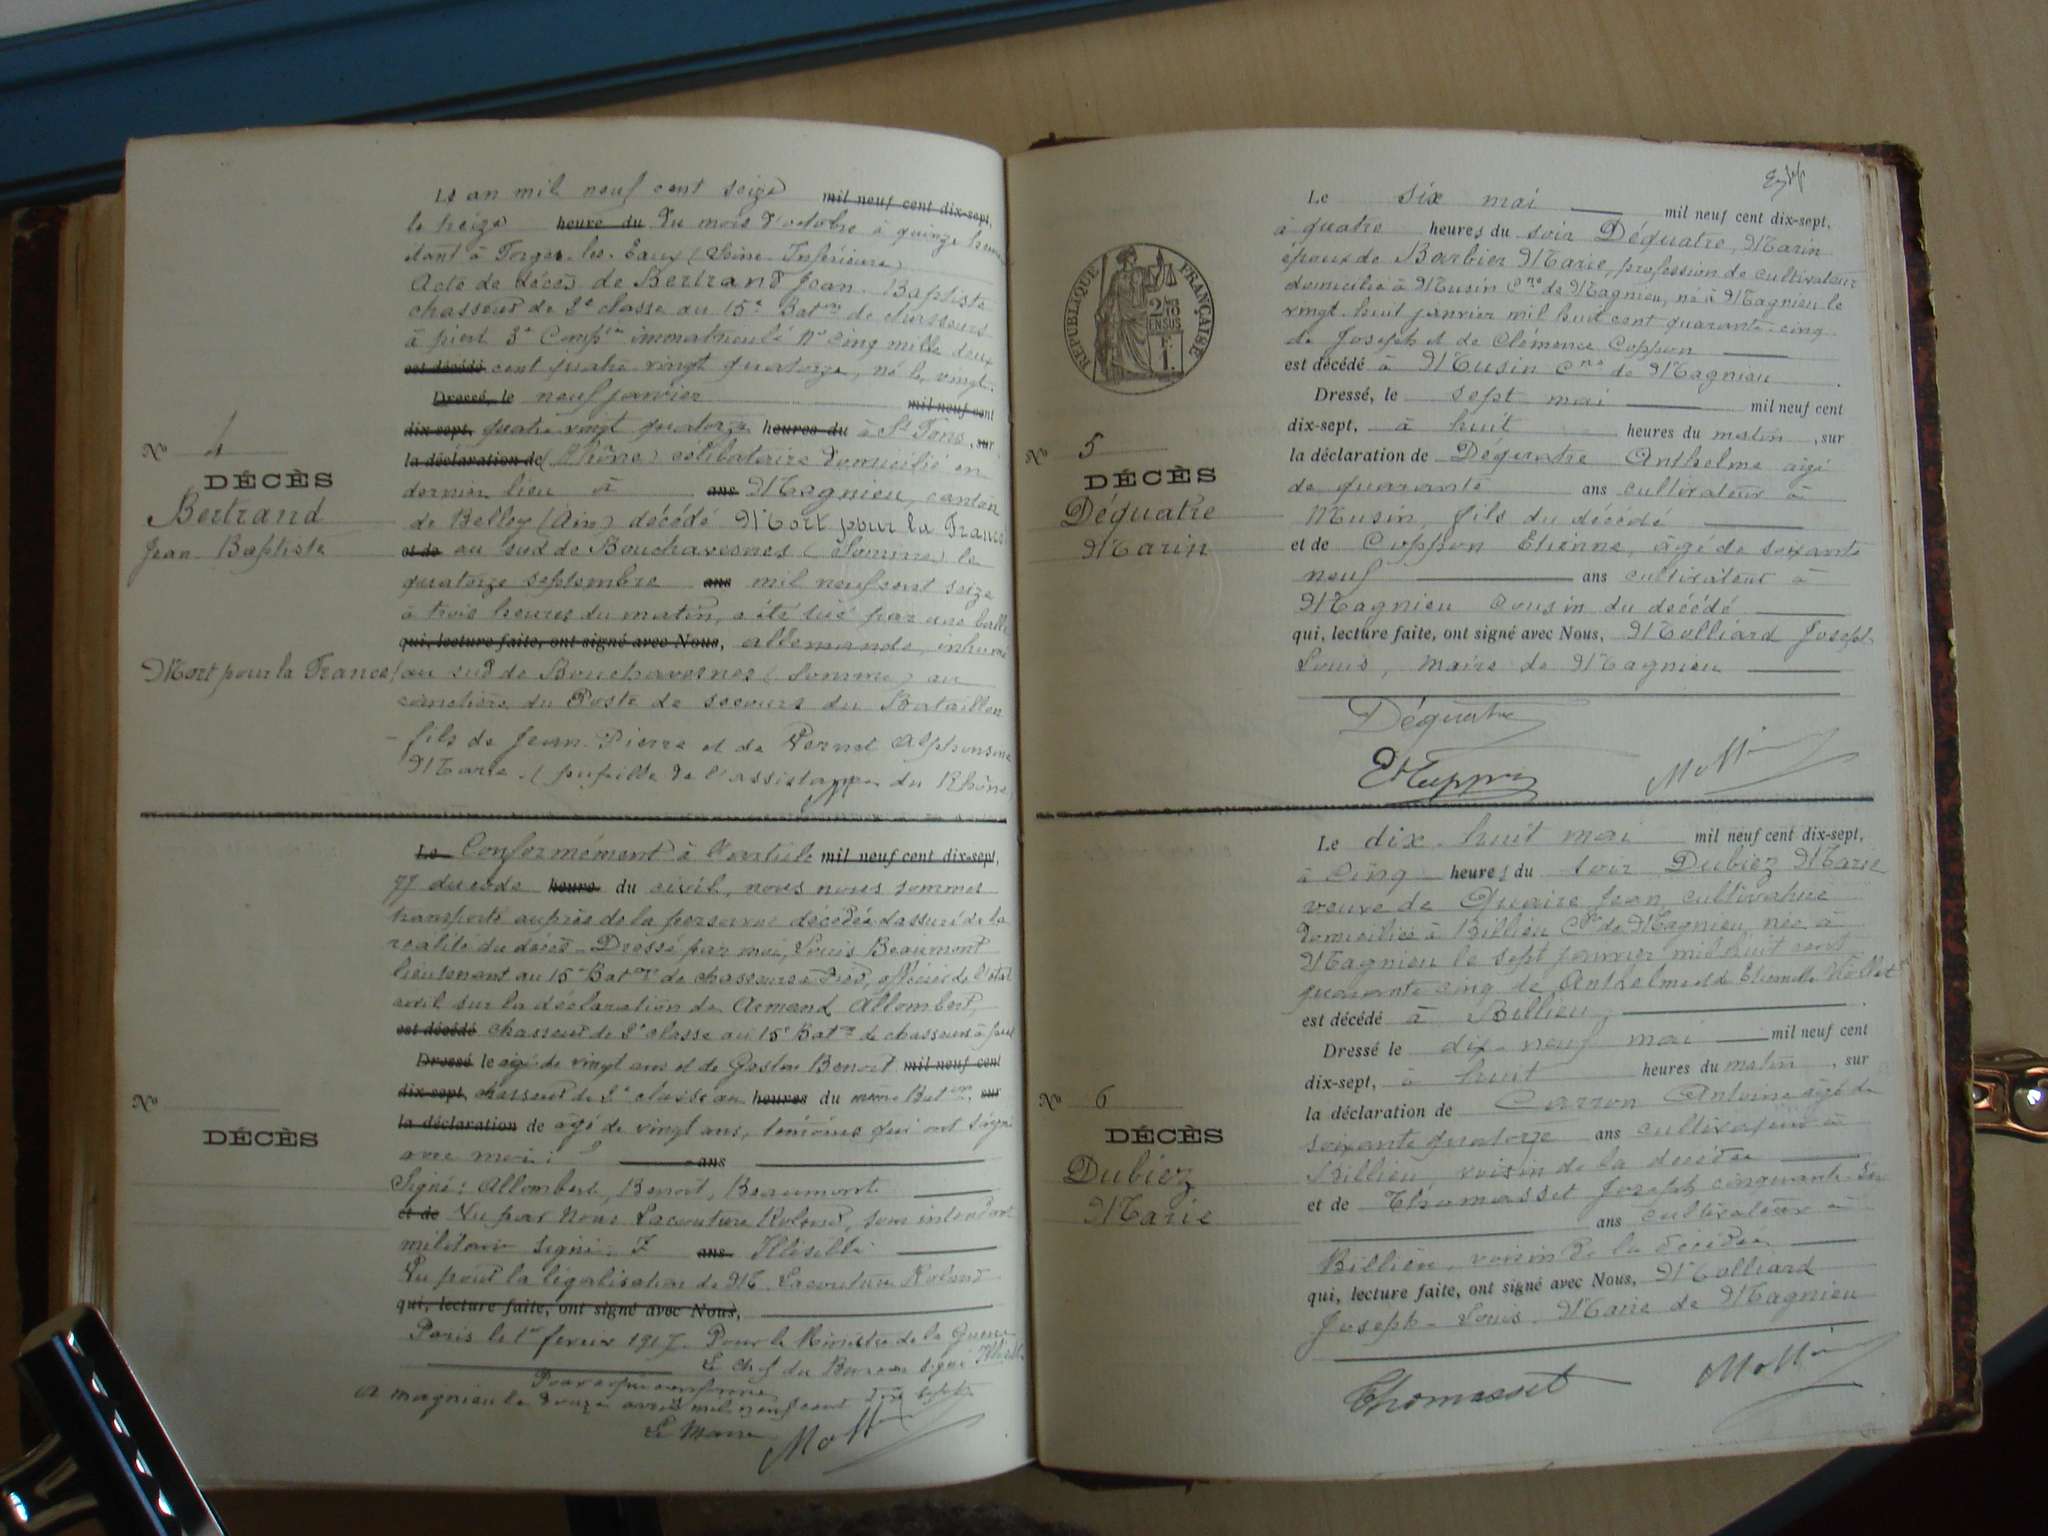 Le an mil neuf cent seize mil neuf cent dix-sept,
le treize heure du du mois d'octobre à quinze heures
étant à Forges-les-Eaux (Seine-Inférieure)
Acte de décès de Bertrand Jean-Baptiste
chasseur de 2e classe au 15e Baton de chasseurs
à pied 3e Compie immatriculé No cinq mille deux
est décédé cent quatre vingt quatorze, né le vingt-
Dressé, le neuf janvier mil neuf cent
dix-sept, quatre vingt quatorze heures du à St Fons, sur
la déclaration de (Rhône) célibataire domicilié en
dernier lieu à ans Magnieu, canton
de Belley (Ain) décédé Mort pour la France
et de au sud de Bouchavesnes (Somme) le
quatorze septembre ans mil neuf cent seize
à trois heures du matin, a été tué par une balle
qui, lecture faite, ont signé avec Nous, allemande, inhumé
au sud de Bouchavesnes (Somme) au
cimetière du Poste de secours du Bataillon
- fils de Jean-Pierre et de Pernet Alphonsine
Marie. (pupille de l'assistance du Rhône)
No 4
DÉCÈS
Bertrand
Jean-Baptiste
Mort pour la France
Le Conformément à l'article mil neuf cent dix-sept,
77 du code heure du civil, nous nous sommes
transporté auprès de la personne décédée et assuré de la
réalité du décès - Dressé par moi, Louis Beaumont
lieutenant au 15e Baton de chasseurs à pied, officier de l'état
civil sur la déclaration de Armand Allombert,
est décédé chasseur de 2e classe au 15e Baton de chasseurs à pied
Dressé le agé de vingt ans et de Gaston Benoit mil neuf cent
dix-sept, chasseur de 2e classe au heures du même Baton, sur
la déclaration de âgé de vingt ans, témoins qui ont signé
avec moi: ans
Signé: Allombert, Benoit, Beaumont
et de Vu par Nous Lacouture Roland, sous intendant
militaire signé: ans
Vu pour la légalisation de M. Lacouture Roland
qui, lecture faite, ont signé avec Nous,
Paris le 1er fevrier 1917. Pour le Ministre de la Guerre
Le chef du Bureau signé
Pour copie conforme
A magnieu le douze avril mil neuf cent dix sept
Le Maire
No
DÉCÈS
Le six mai mil neuf cent dix-sept,
à quatre heures du soir Déquatre, Marin
époux de Barbier Marie, profession de cultivateur
domicilié à Musin Cne de Magnieu, né à Magnieu le
vingt-huit janvier mil huit cent quarante-cinq
de Joseph et de Clémence Coppon
est décédé à Musin Cne de Magnieu
Dressé, le sept mai mil neuf cent
dix-sept, à huit heures du matin, sur
la déclaration de Déquatre Anthelme âgé
de quarante ans cultivateur à
Musin, fils du décédé
et de Coppon Etienne, âgé de soixante
neuf ans cultivateur à
Magnieu cousin du décédé
qui, lecture faite, ont signé avec Nous, Molliard Joseph
Louis, maire de Magnieu
Déquatre
RÉPUBLIQUE FRANÇAISE
2/10
EN SUS
1 F.
No 5
DÉCÈS
Déquatre
Marin
Le dix-huit mai mil neuf cent dix-sept,
à cinq heures du soir Dubiez Marie
veuve de Quaire Jean, cultivatrice
domiciliée à Billieu Cne de Magnieu, née à
Magnieu le sept janvier mil huit cent
quarante cinq de Anthelme et de Etiennette Mollet
est décédé à Billieu,
Dressé le dix-neuf mai mil neuf cent
dix-sept, à huit heures du matin, sur
la déclaration de Carron Antoine âgé de
soixante quatorze ans cultivateur à
Billieu, voisin de la décédée
et de Thomasset Joseph cinquante-six
ans cultivateur à
Billieu, voisin de la décédée
qui, lecture faite, ont signé avec Nous, Molliard
Joseph-Louis, Maire de Magnieu
Thomasset
No 6
DÉCÈS
Dubiez
Marie